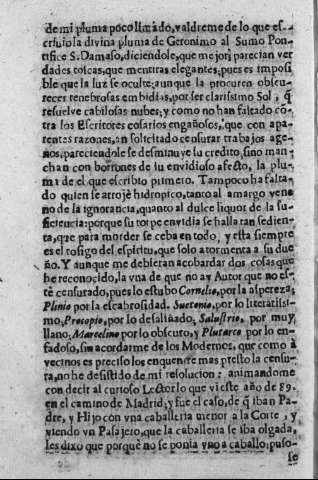 de mi pluma poco limado, valdreme de lo que es-
criuio la divina pluma de Geronimo al Sumo Pon-
tifice S. Damaso, diciendole, que mejor parecian ver
dades toscas, que mentiras elegantes; pues es imposi
ble que la luz se oculte; aunque la procuren obscu-
recer tenebrosas embidias, por ser clarissimo Sol, q̃
resuelve cabilosas nubes; y como no han faltado cõ
tra los Escritores cosarios engañosos, que con apa-
rentes razones, an solicitado censurar trabajos age-
nos, pareciendole se desminuye su credito, sino man-
chan con borrones de su envidioso afecto, la plu-
ma de el que escribio primero. Tampoco ha falta-
do quien se arroje hidropico, tanto al amargo vene
no de la ignorancia, quanto al dulce liquor de la su-
ficiencia: porque su torpe envidia se halla tan sedien-
ta, que para morder se ceba en todo, y esta siempre
es el tosigo del espiritu, que solo atormenta a su due
ño. Y aunque me debieran acobardar dos cosas que
he reconocido, la vna de que no ay Autor que no es-
tè censurado, pues lo estubo Cornelio, por la aspereza;
Plinio por la escabrosidad. Suetonio, por lo literatissi-
mo, Procopio, por lo desaliñado, Salustrio, por muy
llano, Marcelino por lo obscuro, y Plutarco por lo en-
fadoso, sin acordarme de los Modernos, que como à
vecinos es preciso los enquentre mas presto la censu-
ra, no he desistido de mi resolucion: animandome
con decir al curioso Lector lo que vi este año de 89.
en el camino de Madrid, y fue el caso, de q̃ iban Pa-
dre, y Hijo con vna caballeria menor a la Corte, y
viendo vn Pasajero, que la caballeria se iba olgada,
les dixo que porquè no se ponia vno a caballo; puso-
se